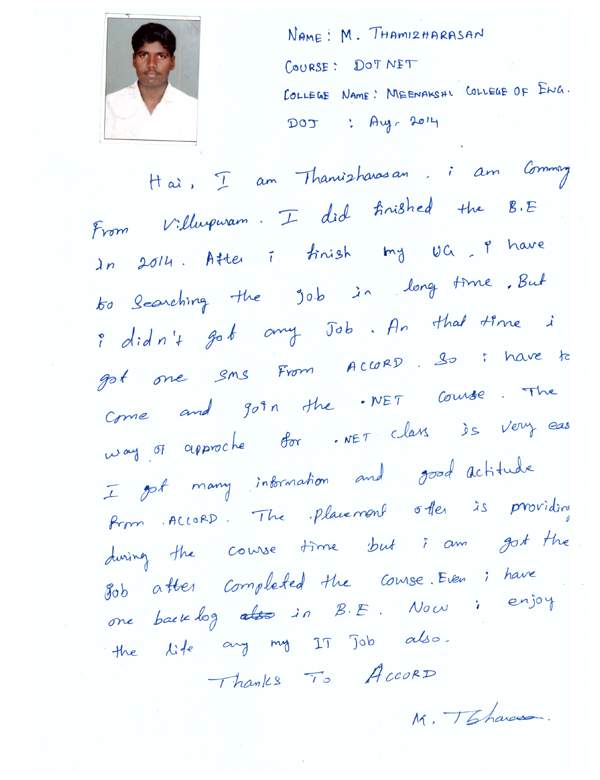 NAME: M. THAMIZHARASAN
COURSE: DOTNET
COLLEGE NAME: MEENAKSHI COLLEGE OF ENG.
DOJ : Aug- 2014
Hai, I am Thamizharasan. i am Comming
From Villupuram. I did finished the B.E
in 2014. After i finish my UG, i have
to Searching the job in long time. But
i didn't got any Job. An that time i
got one SMS From ACCORD. So i have to
Come and join the .NET Course. The
way of approche for .NET class is very eas
I got many information and good actitude
From ACCORD. The placement offer is providing
during the course time but i am got the
job after completed the course. Even i have
one backlog in B.E. Now i enjoy
the life any my IT job also.
Thanks To ACCORD
M. T